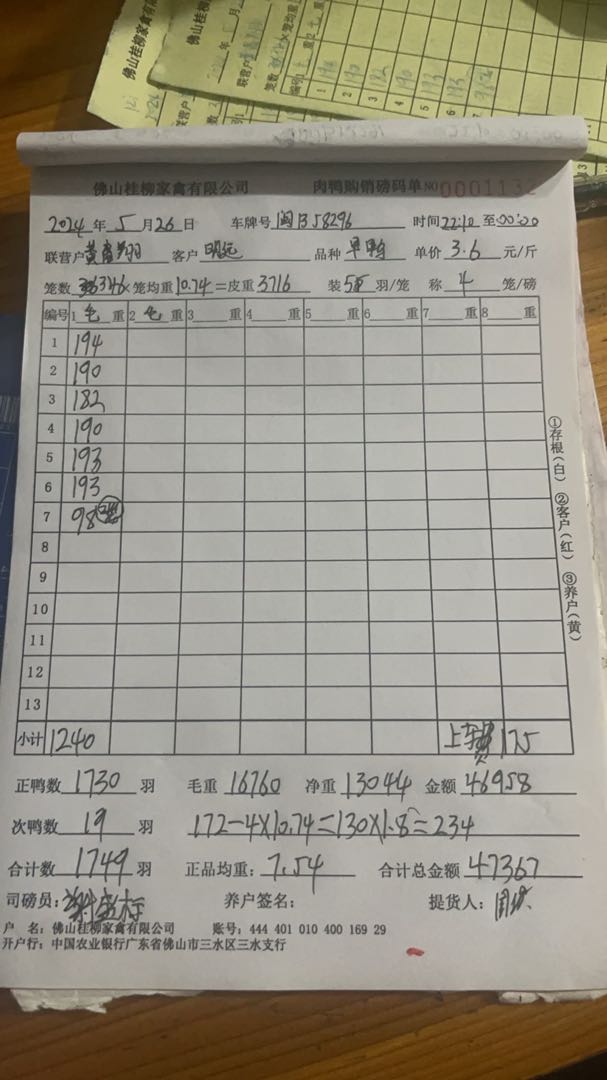 佛山桂柳家禽有限公司 肉鸭购销磅码单 NO 0001132
2024年5月26日 车牌号 闽B58296 时间 22:10 至 00:00
联营户 黄 客户 明远 品种 单鸭 单价 3.6 元/斤
笼数 346 ×笼均重 10.74 =皮重 3716 装 5 羽/笼 称 4 笼/磅
编号 1 毛 重 2 毛 重 3 重 4 重 5 重 6 重 7 重 8 重
1 194
2 190
3 182
4 190
5 193
6 193
7 98
8
9
10
11
12
13
小计 1240 上车费 175
正鸭数 1730 羽 毛重 16760 净重 13044 金额 46958
次鸭数 19 羽 172-4×10.74=130×1.8=234
合计数 1749 羽 正品均重: 7.54 合计总金额 47367
司磅员: 养户签名: 提货人:
户 名: 佛山桂柳家禽有限公司 账号: 444 401 010 400 169 29
开户行: 中国农业银行广东省佛山市三水区三水支行
①存根(白) ②客户(红) ③养户(黄)